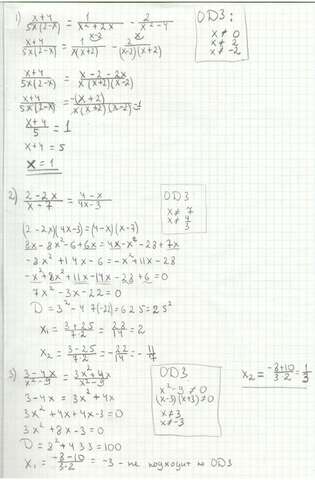 1) x+4/5x(2-x) = 1/x²+2x - 2/x²-4
ОДЗ:
x ≠ 0
x ≠ 2
x ≠ -2
x+4/5x(2-x) = 1/x(x+2) - 2/(x-2)(x+2)
x+4/5x(2-x) = x-2-2x/x(x+2)(x-2)
x+4/5x(2-x) = -(x+2)/x(x+2)(x-2)
x+4/5 = 1
x+4 = 5
x = 1
2) 2-2x/x-7 = 4-x/4x-3
ОДЗ
x ≠ 7
(2-2x)(4x-3)=(4-x)(x-7)
8x-8x²-6+6x=4x-x²-28+7x
-8x²+14x-6=-x²+11x-28
-x²+8x²+11x-14x-28+6=0
7x²-3x-22=0
D=3²-4·7(-22)=625=25²
x₁ = 3+25/7·2 = 28/14 = 2
x₂ = 3-25/7·2 = -22/14 = -11/7
3) 3-4x/x²-9 = 3x²+4x/x²-9
ОДЗ
x²-9 ≠ 0
(x-3)(x+3) ≠ 0
x ≠ 3
x ≠ -3
x₂ = -8+10/3·2 = 1/3
3-4x = 3x²+4x
3x²+4x+4x-3=0
3x²+8x-3=0
D=8²+4·3·3=100
x₁ = -8-10/3·2 = -3 - не подходит по ОДЗ